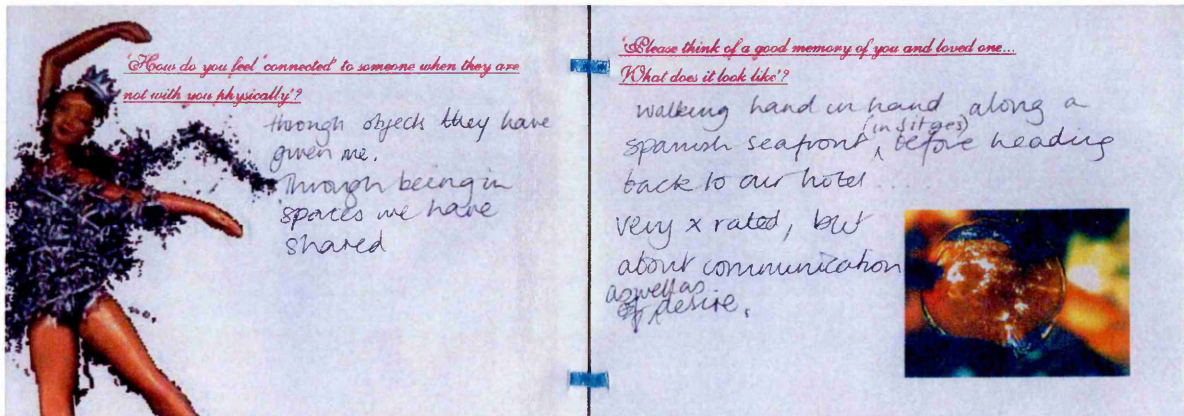 'How do you feel 'connected' to someone when they are
not with you physically'?
through objects they have
given me.
Through being in
spaces we have
shared
'Please think of a good memory of you and loved one...
What does it look like'?
walking hand in hand along a
spanish seafront, (in Sitges) before heading
back to our hotel....
very x rated, but
about communication
as well as
desire.